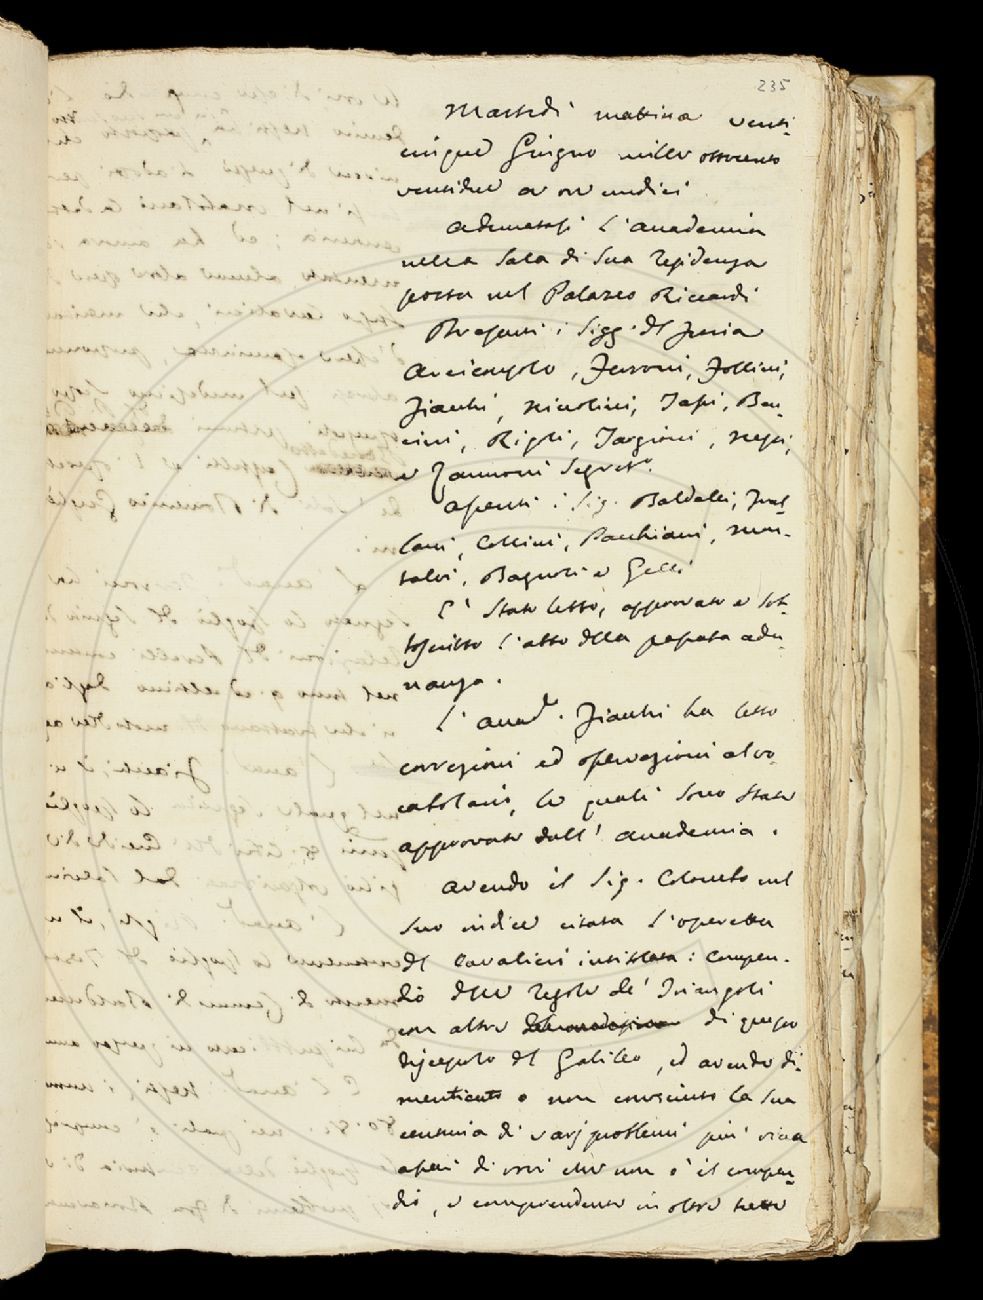 235
Martedì mattina venti-
cinque Giugno mille ottocento
ventidue a ore undici
Adunatasi l'Accademia
nella Sala di Sua residenza
posta nel Palazzo Riccardi
Presenti i Sigg. del Furia
Arciconsolo, Ferroni, Follini,
Fiacchi, Niccolini, Sarti, Ben-
cini, Rigoli, Targioni, Nesti,
e Zannoni Segret.º
Assenti i Sig. Baldelli, Frul-
lani, Collini, Pacchiani, Mon-
talvi, Bagnoli e Gelli
È stato letto, approvato e sot-
toscritto l'atto della passata adu-
nanza.
L'accad. Fiacchi ha letto
correzioni ed osservazioni al vo-
cabolario, le quali sono state
approvate dall'Accademia.
Avendo il Sig. Colombo nel
suo indice citata l'operetta
del Cavalieri intitolata: Compen-
dio delle regole de' Triangoli
con altre di questo
discepolo del Galileo, ed avendo di-
menticato o non conosciuto la sua
centuria di varj problemi più ricca
assai di voci che non è il compen-
dio, e comprendente in oltre tutto